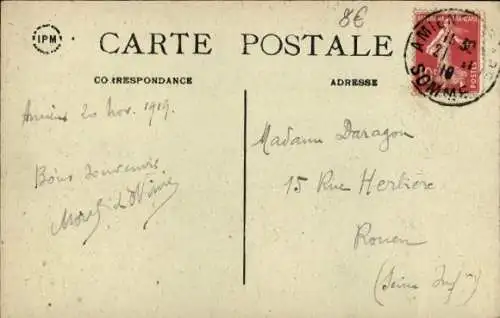 8€
IPM
CARTE POSTALE
CORRESPONDANCE
ADRESSE
AMIENS
21
19
SOMME
Amiens 20 Nov. 1919.
Bons Souvenirs
Madame Daragon
15 Rue Herbière
Rouen
(Seine Infre)